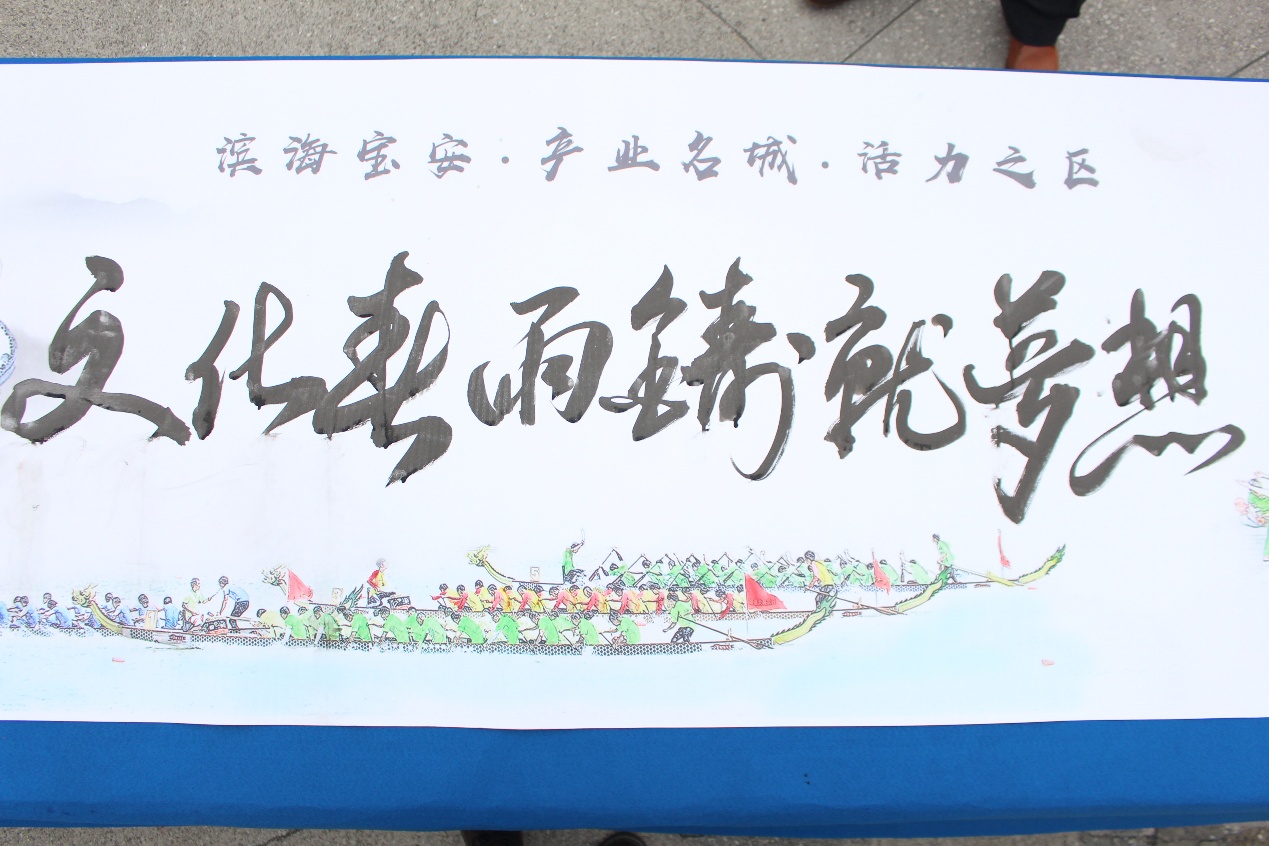 滨海宝安·产业名城·活力之区
文化春雨鑄就夢想